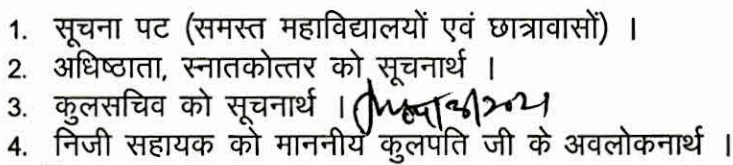 1. सूचना पट (समस्त महाविद्यालयों एवं छात्रावासों) ।
2. अधिष्ठाता, स्नातकोत्तर को सूचनार्थ ।
3. कुलसचिव को सूचनार्थ ।
4. निजी सहायक को माननीय कुलपति जी के अवलोकनार्थ ।